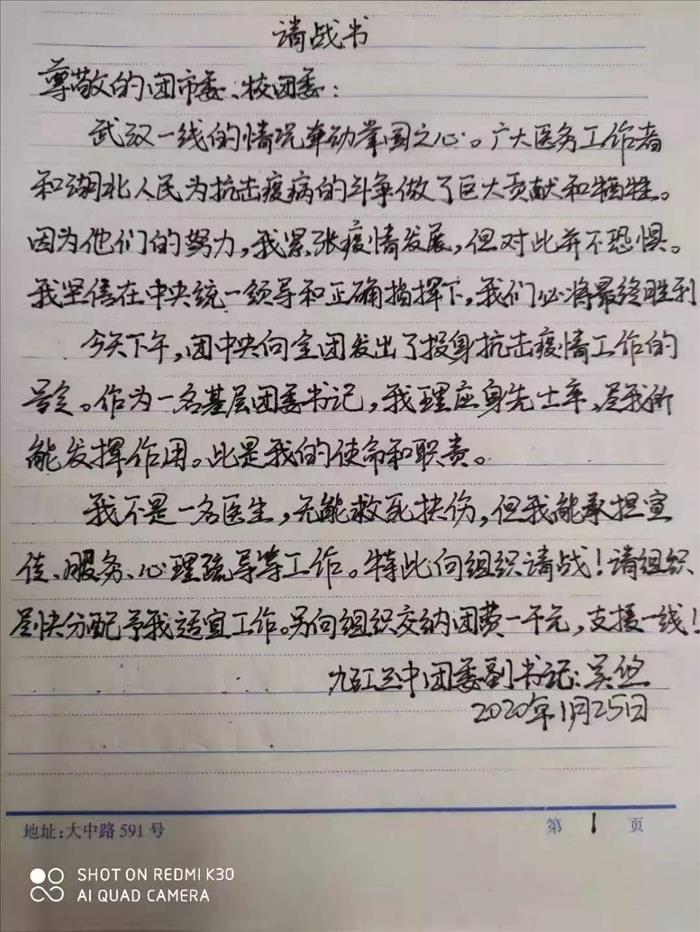 请战书
尊敬的团市委、校团委：
武汉一线的情况牵动举国之心。广大医务工作者
和湖北人民为抗击疫病的斗争做了巨大贡献和牺牲。
因为他们的努力，我紧张疫情发展，但对此并不恐惧。
我坚信在中央统一领导和正确指挥下，我们必将最终胜利
今天下午，团中央向全团发出了投身抗击疫情工作的
号令。作为一名基层团委书记，我理应身先士卒，尽我所
能发挥作用。此是我的使命和职责。
我不是一名医生，无能救死扶伤，但我能承担宣
传、服务、心理疏导等工作。特此向组织请战！请组织
尽快分配予我适宜工作。另向组织交纳团费一千元，支援一线！
九江三中团委副书记：吴悠
2020年1月25日
地址：大中路 591 号
第 1 页
SHOT ON REDMI K30
AI QUAD CAMERA